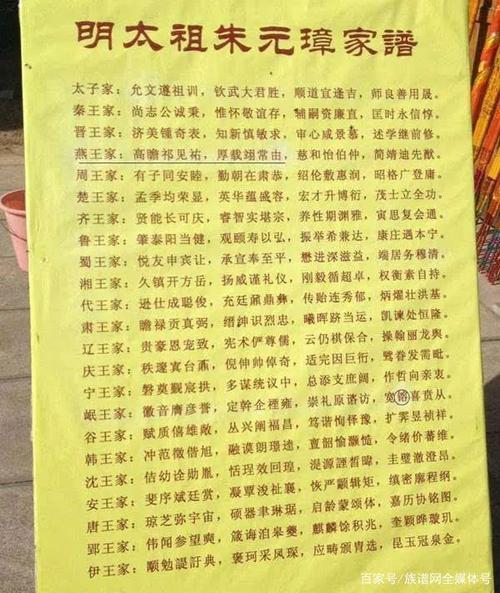 明太祖朱元璋家譜
太子家：允文遵祖训，钦武大君胜，顺道宣逢吉，师良善用晟。
秦王家：尚志公诚秉，惟怀敬谊存，辅嗣资廉直，匡时永信惇。
晋王家：济美锺奇表，知新慎敏求，审心咸景慕，述学继前修。
燕王家：高瞻祁见祐，厚载翊常由，慈和怡伯仲，简靖迪先猷。
周王家：有子同安睦，勤朝在肃恭，绍伦敷惠润，昭格广登庸。
楚王家：孟季均荣显，英华蕴盛容，宏才升博衍，茂士立全功。
齐王家：贤能长可庆，睿智实堪宗，养性期渊雅，寅思复会通。
鲁王家：肇泰阳当健，观颐寿以弘，振举希兼达，康庄遇本宁。
蜀王家：悦友申宾让，承宣奉至平，懋进深滋益，端居务穆清。
湘王家：久镇开方岳，扬威谨礼仪，刚毅循超卓，权衡素自持。
代王家：逊仕成聪俊，充廷鼐鼎彝，传贻连秀郁，炳燿壮洪基。
肃王家：瞻禄贡真弼，缙绅识烈忠，曦晖跻当运，凯谏处恒隆。
辽王家：贵豪恩宠致，宪术俨尊儒，云仍祺保合，操翰丽龙舆。
庆王家：秩邃寘台鼒，倪伸帅倬奇，适完因巨衍，鸳眷发需毗。
宁王家：磐奠觐宸拱，多谋统议中，总添支庶阔，作哲向亲衷。
岷王家：徽音膺彦誉，定幹企禋雍，崇礼原谘访，宽镕喜贲从。
谷王家：赋质僖雄敞，丛兴阐福昌，笃谐恂怿豫，扩霁昱祯祥。
韩王家：冲范徵偕旭，融谟朗璟逵，亶韶愉灏慥，令绪价蕃维。
沈王家：佶幼诠勋胤，恬珵效回瑝，湜源諲晢暐，圭璧澈澄昂。
安王家：斐序斌廷赏，凝覃浚祉襄，恢严颛辑矩，缜密廓程纲。
唐王家：琼芝弥宇宙，硕器聿琳琚，启龄蒙颂体，嘉历协铭图。
郢王家：伟闻参望奭，箴诲洎皋夔，麒麟馀积兆，奎颖晔璇玑。
伊王家：顺勉諟訏典，褒珂采凤琛，应畴颁胄选，昆玉冠泉金。
百家号/族谱网全媒体号